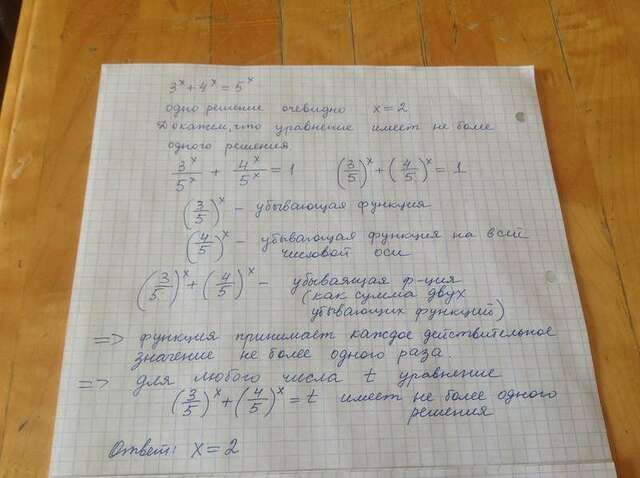 3^x + 4^x = 5^x
одно решение очевидно x = 2
Докажем, что уравнение имеет не более
одного решения.
3^x/5^x + 4^x/5^x = 1 (3/5)^x + (4/5)^x = 1
(3/5)^x – убывающая функция
(4/5)^x – убывающая функция на всей
числовой оси
(3/5)^x + (4/5)^x – убывающая ф-ция
(как сумма двух
убывающих функций)
=> функция принимает каждое действительное
значение не более одного раза.
=> для любого числа t уравнение
(3/5)^x + (4/5)^x = t имеет не более одного
решения
Ответ: x = 2